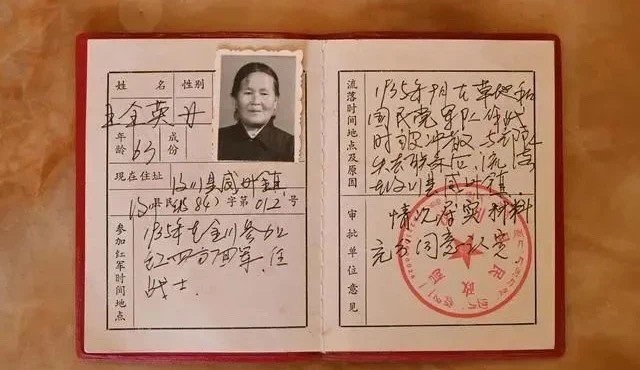 姓名
性别
王全英 女
年龄
63
成份
现在住址
汶川县威州镇
汶川县民(84)字第012号
参加红军时间地点
1935年在金川参加
红四方面军,任
战士.
流落时间地点及原因
1935年9月在草地和
国民党军队作战
时被冲散,与部队
失去联系后,流落
在汶川县威州镇.
审批单位意见
情况属实材料
充分同意认定
民政局